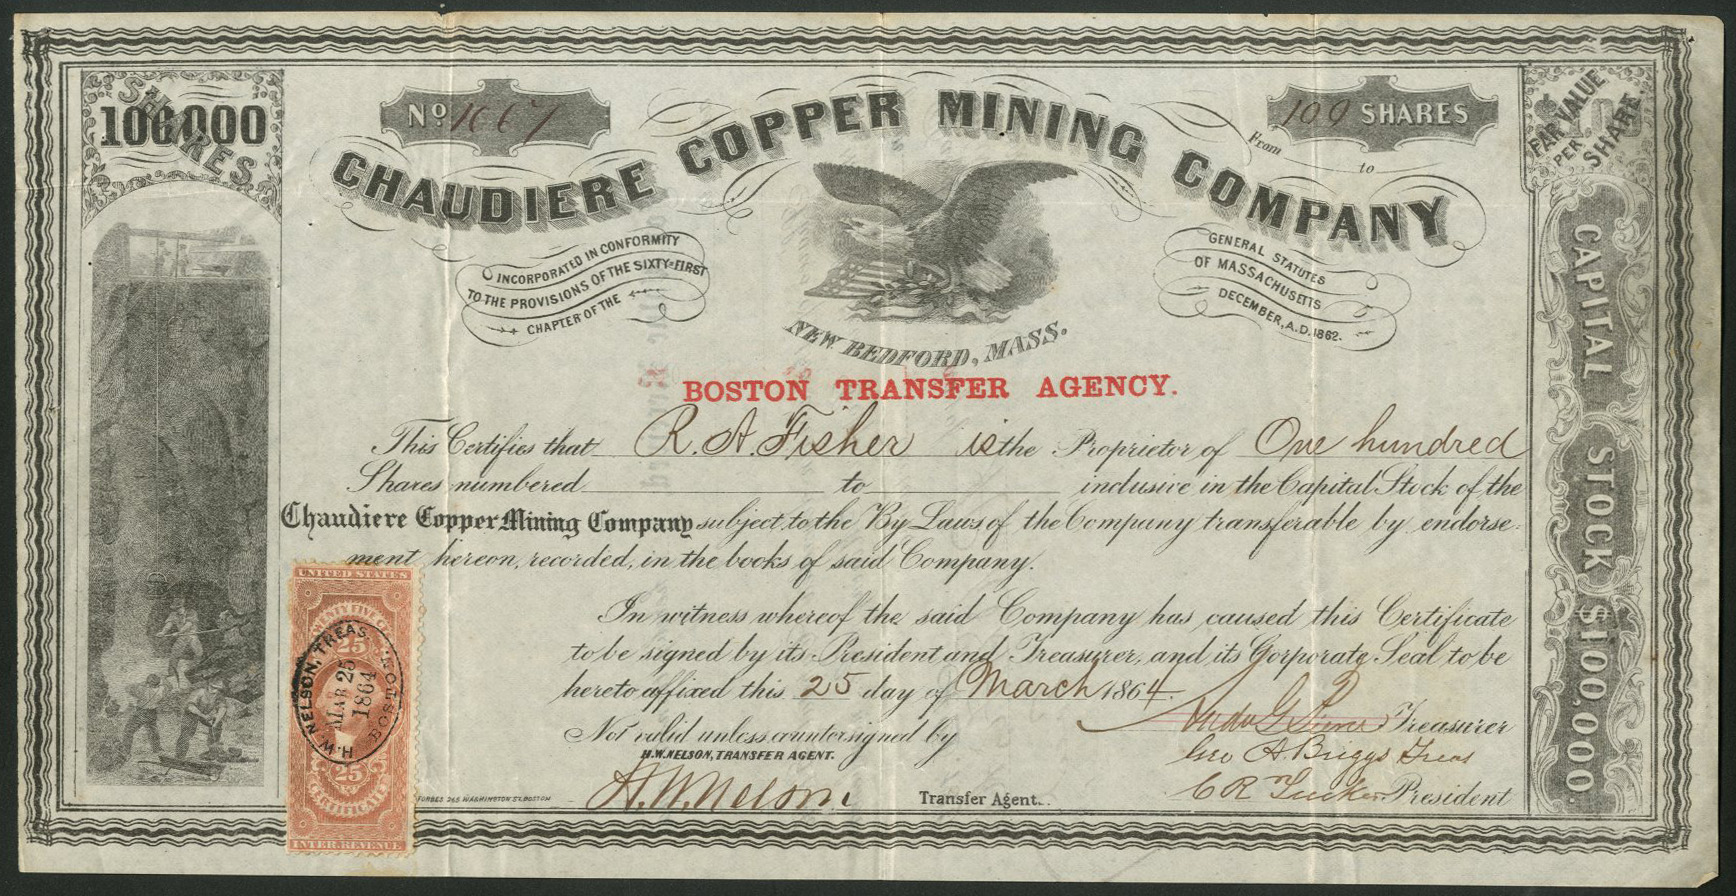 SHARES
100,000
No. 1667
100 SHARES
From to
PAR VALUE
PER
SHARE
CHAUDIERE COPPER MINING COMPANY
INCORPORATED IN CONFORMITY
TO THE PROVISIONS OF THE SIXTY-FIRST
CHAPTER OF THE
GENERAL STATUTES
OF MASSACHUSETTS
DECEMBER, A.D. 1862.
NEW BEDFORD, MASS.
BOSTON TRANSFER AGENCY.
This Certifies that R. A. Fisher is the Proprietor of One hundred
Shares numbered to inclusive in the Capital Stock of the
Chaudiere Copper Mining Company subject to the By Laws of the Company transferable by endorse-
ment hereon, recorded, in the books of said Company.
In witness whereof the said Company has caused this Certificate
to be signed by its President and Treasurer, and its Corporate Seal to be
hereto affixed this 25 day of March 1864.
Treasurer
Not valid unless countersigned by
H.W. NELSON, TRANSFER AGENT.
Geo A. Briggs Treas
H. W. Nelson Transfer Agent.
C R Tucker President
FORBES 265 WASHINGTON ST. BOSTON
CAPITAL STOCK $100,000.
UNITED STATES
TWENTY FIVE
25
H.W. NELSON, TREAS. BOSTON
MAR 25
1864
25
CERTIFICATE
INTER. REVENUE